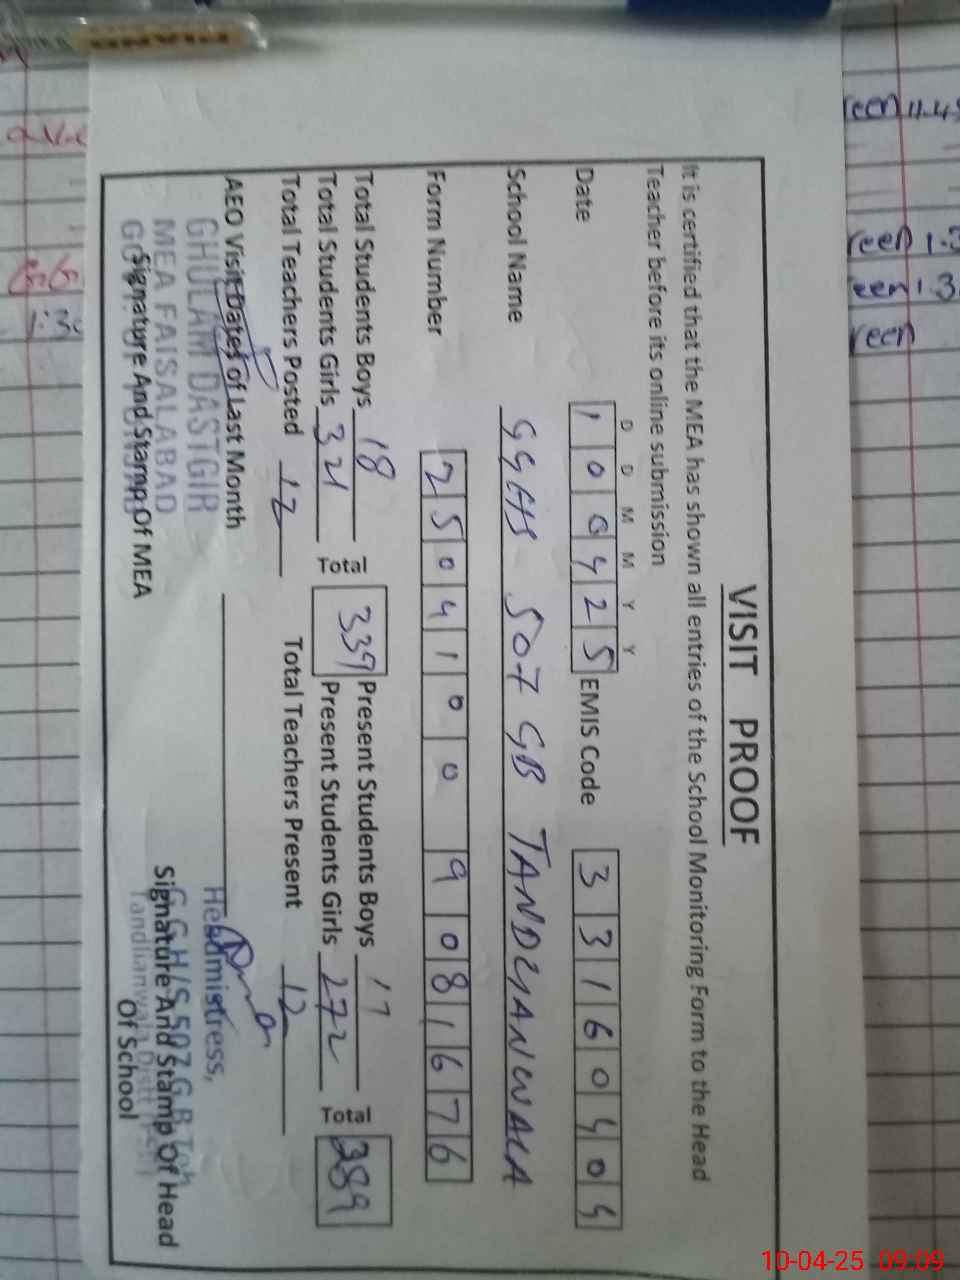 VISIT PROOF
It is certified that the MEA has shown all entries of the School Monitoring Form to the Head
Teacher before its online submission
D D M M Y Y
Date 1 0 0 4 2 5 EMIS Code 3 3 1 6 0 4 0 4
School Name GGHS 507 GB TANDLIANWALA
Form Number 2 5 0 4 1 0 0 9 0 8 1 6 7 6
Total Students Boys 18 Total 339 Present Students Boys 17 Total 289
Total Students Girls 321 Present Students Girls 272
Total Teachers Posted 12 Total Teachers Present 12
AEO Visit Dates of Last Month
GHULAM DASTGIR
MEA FAISALABAD
Headmistress,
G.G.H/S 507 G.B Teh
Tandlianwala Distt
Signature And Stamp Of MEA Signature And Stamp Of Head
Of School
reen 11.4
reen 1.3
een 1.3
reen
1:30
PIANO
10-04-25 09:09